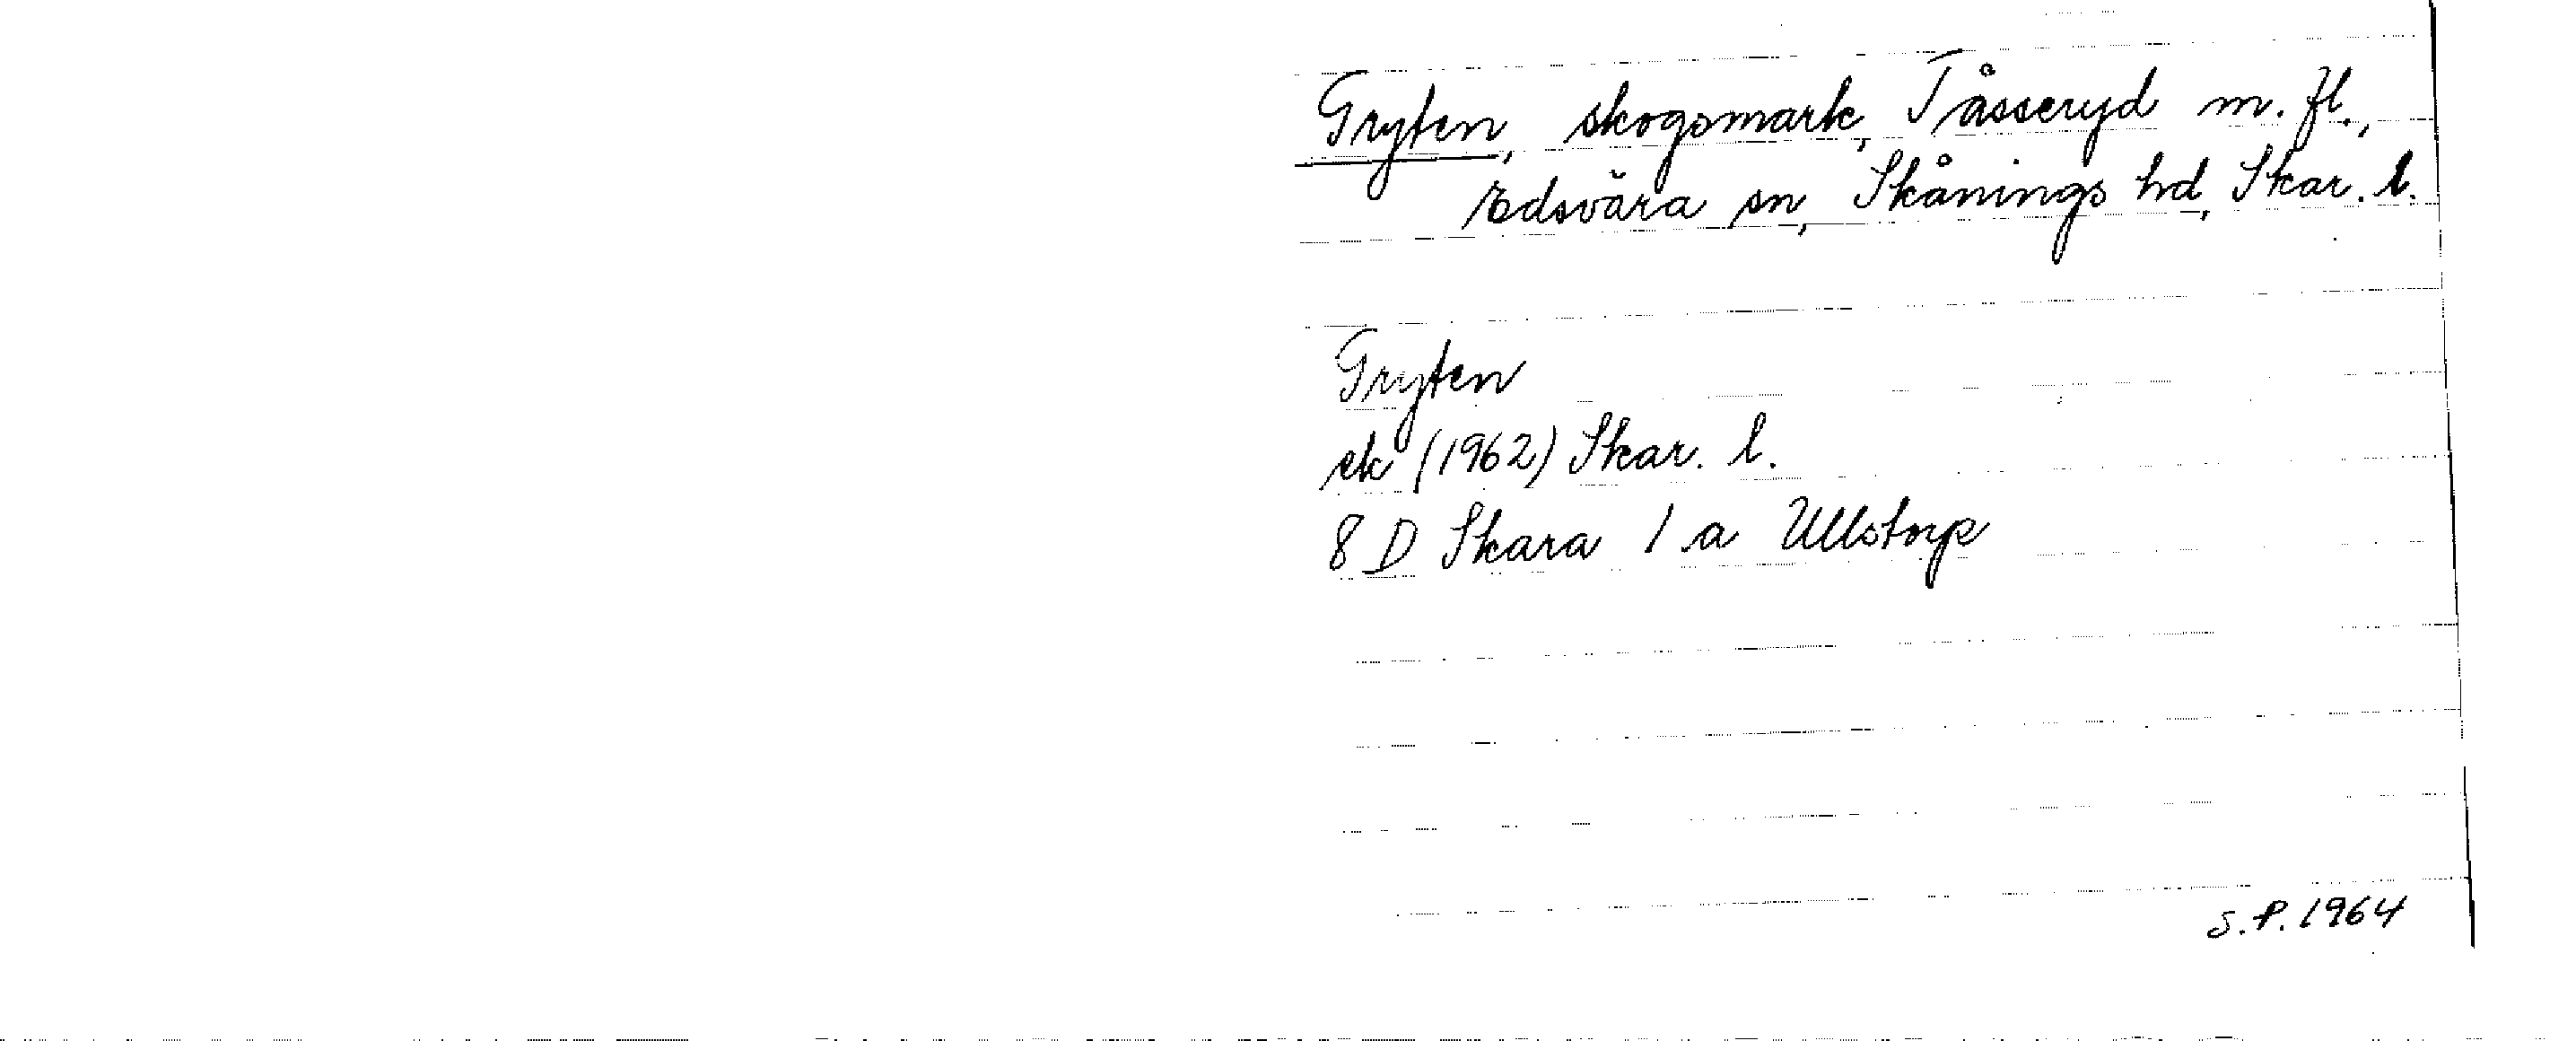 Gryten, skogsmark, Tåsseryd m. fl.,
Edsvära sn, Skånings hd, Skar. l.
Gryten
ek (1962) Skar. l.
8 D Skara 1 a Ullstorp
S.P. 1964